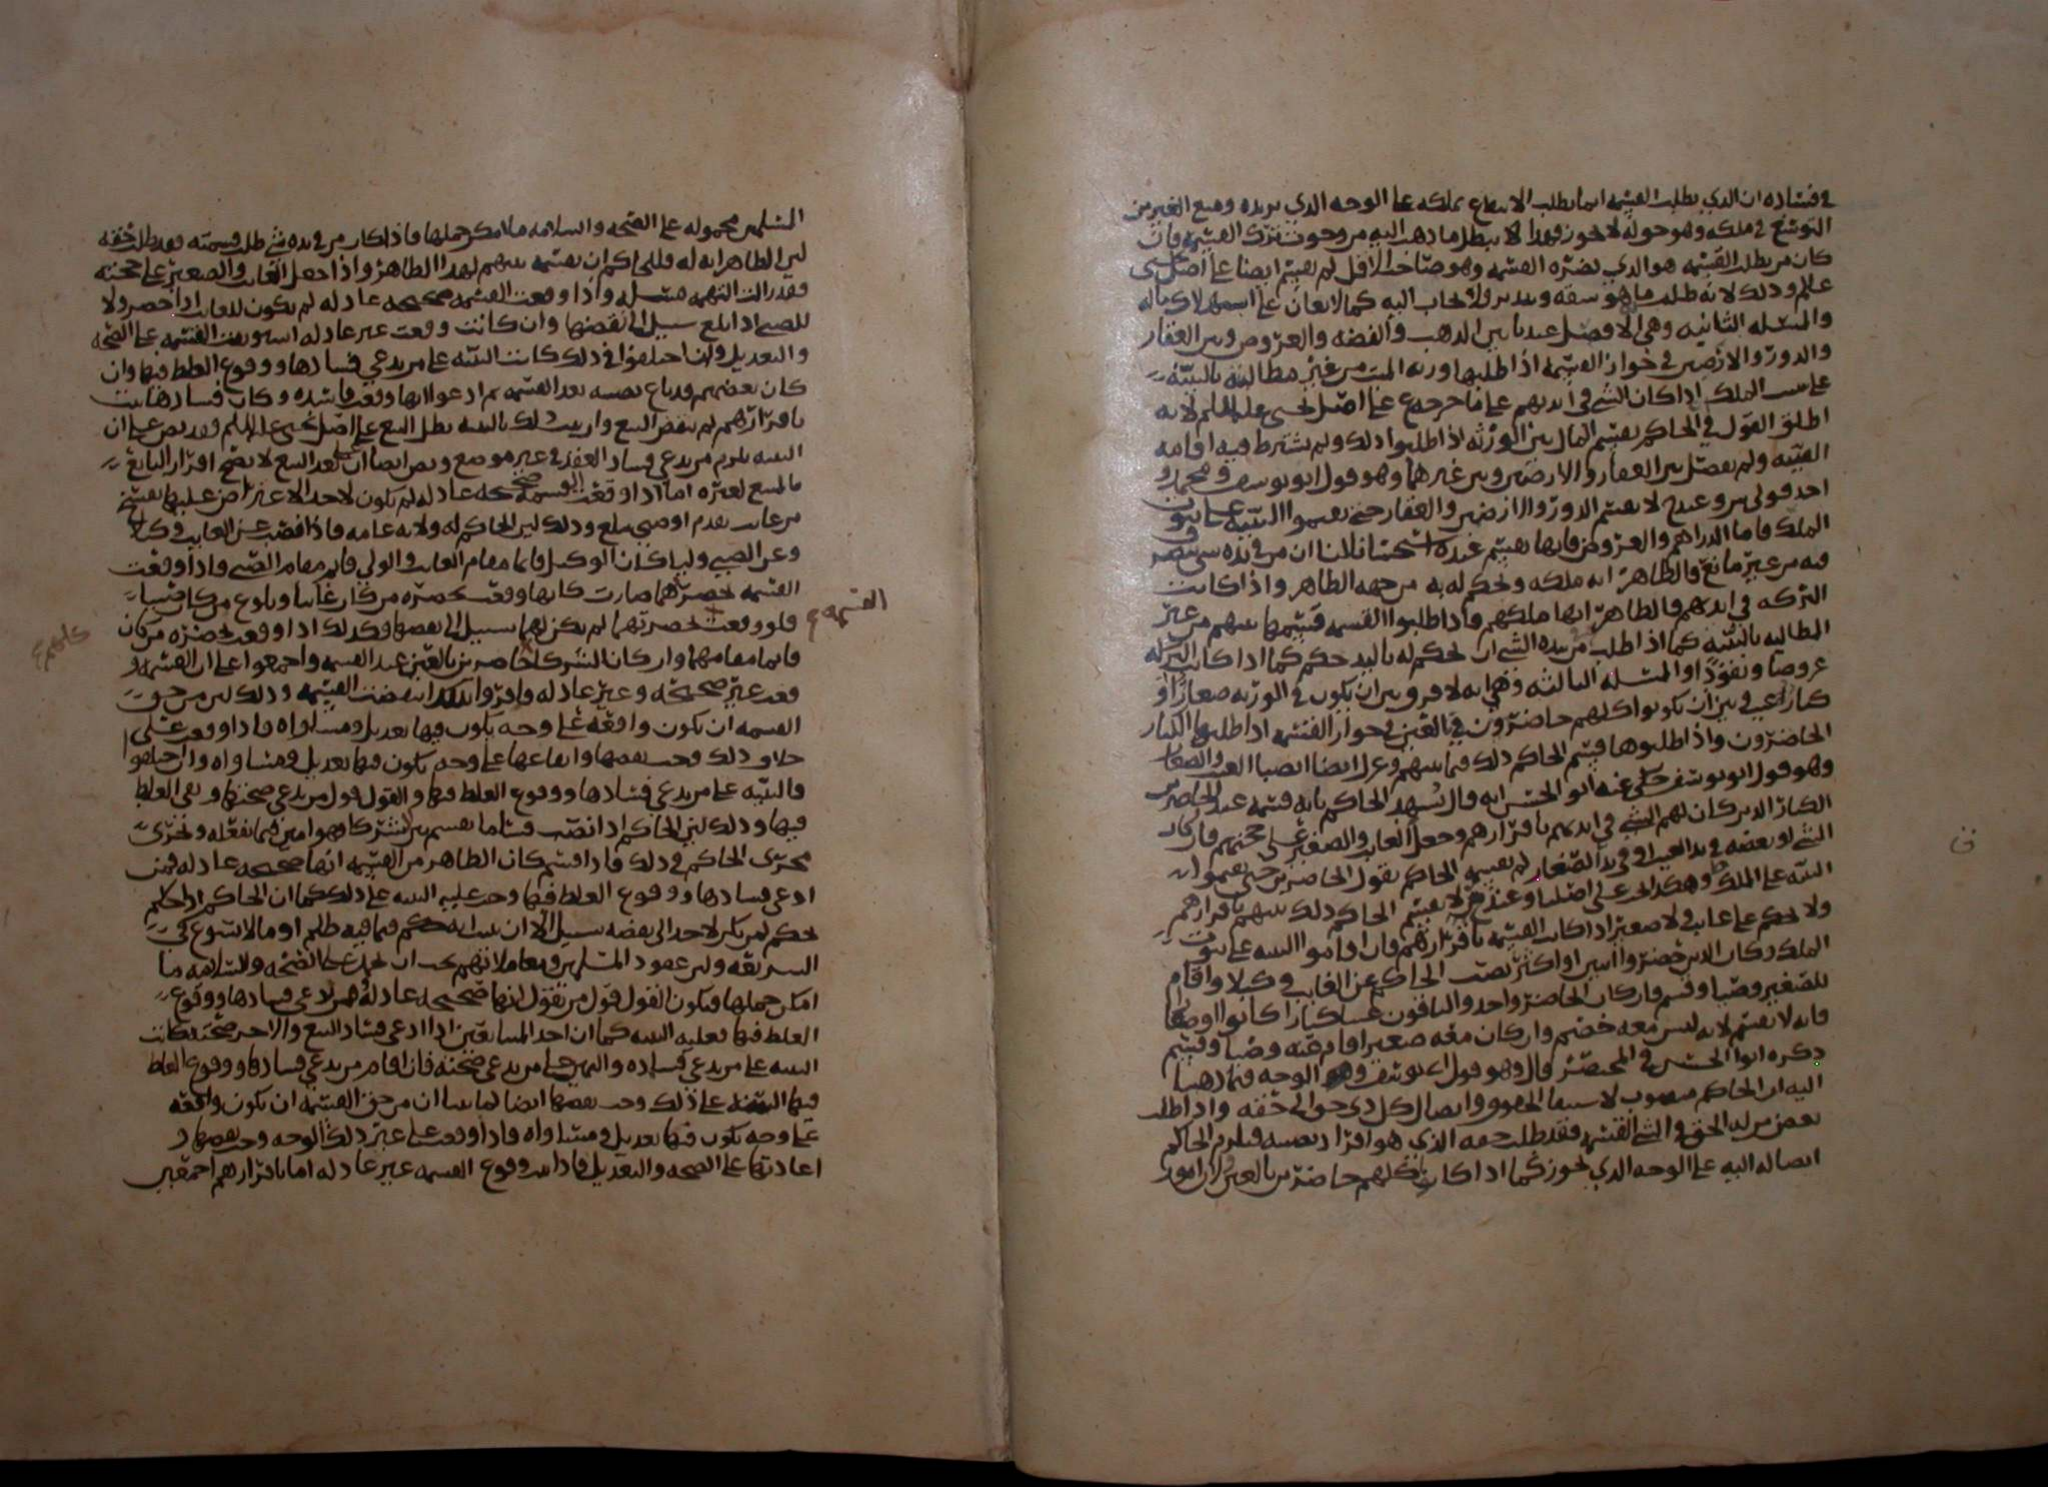 في فساده ان الذي يطلب القسمة انما يطلب الانتفاع بملكه على الوجه الذي يريده ومنع الغير من
التوسع في ملكه وهو حوله لا يجوز فهذا لا يبطل ما ذهب اليه من وجوب ترك القسمة فان
كان من يطلب القسمة هو الذي تضره القسمة وهو صاحب الاقل لم يقسم ايضا على اصل يحيى
علم وذلك لانه طلب ما هو سفه وتبذير ولا يجاب اليه كما لا يعان على
والمسله الثانيه وهي الا فصل عندنا بين الذهب والفضه والعروض وبين العقار
والدور والارضين في جواز القسمة اذا طلبها ورثه الميت من غير مطالبة بالبينة
على الملك اذا كان الشي في ايديهم على ما خرجه ع على اصل يحيى علم لانه
اطلق القول في الحاكم يقسم المال بين الورثه اذا طلبوا ذلك ولم يشترط فيه اقامه
البينه ولم يفصل بين العقار والارضين وبين غيرهما وهو قول ابو يوسف ومحمد و
احد قولي ش وعند ح لا يقسم الدور والارضين والعقار حتى يقيموا البينه على ثبوت
الملك فاما الدراهم والعروض فانها تقسم عنده استحسانا لنا ان من في يده شي يتصرف
فيه من غير مانع فالظاهر انه ملكه ويحكم له به من جهه الظاهر واذا كانت
التركه في ايديهم فالظاهر انها ملكهم فاذا طلبوا القسمه قسمها بينهم من غير
المطالبه بالبينه كما اذا طلب من يده الشي ان يحكم له باليد حكم كما اذا كانت التركه
عروضا ونقودا والمسله الثالثه وهي انه لا فرق بين ان يكون في الورثه صغارا او
كبارا غيب وبين ان يكونوا كلهم حاضرون في البالغين في جواز القسمه اذا طلبها الكبار
الحاضرون واذا طلبوها قسم الحاكم ذلك فيما بينهم وعزل ايضا انصبا الغيب والصغار
وهو قول ابو يوسف حكى عنه ابو الحسن انه قال يشهد الحاكم بانه قسمه عند الحاضرين
الكبار الذين كان لهم الشي في ايديهم باقرارهم وجعل الغايب والصغير على حجتهم فان كان
الشي او بعضه في يد الغيب او في يد الصغار لم يقسمه الحاكم بقول الحاضرين حتى يقيموا
البينه على الملك وهكذا يجي على اصلنا وعند لا يقسم الحاكم ذلك بينهم باقرارهم
ولا يحكم على غايب ولا صغير اذا كانت القسمه باقرارهم فان اقاموا البينه على ثبوت
الملك وكان الذين حضروا اثنين او اكثر نصب الحاكم عن الغايب وكيلا واقام
للصغير وصيا وقسم فان كان الحاضر واحدا والباقون غيبا كبارا كانوا او صغارا
فانه لا يقسم لانه ليس معه خصم وان كان معه صغير اقام عنه وصيا وقسم
ذكره ابو الحسن في المختصر قال وهو قول ابي يوسف الوجه فيما ذهبنا
اليه ان الحاكم منصوب لاستيفا الحقوق وايصال كل ذي حق الى حقه واذا طلب
بعض من له الحق في الشي القسمه فقد طلب حقه الذي هو افراز نصيبه فيلزم الحاكم
ايصاله اليه على الوجه الذي يجوز كما اذا كان كلهم حاضرين بالغين ولان امور
المسلمين محموله على الصحه والسلامه ما امكن حملها فاذا كان من في يده شي طلب قسمته فقد طلب حقه
لان الظاهر انه له فللحاكم ان يقسمه بينهم لهذا الظاهر واذا جعل الغايب والصغير على حجته
فقد زالت التهمه واذا وقعت القسمه صحيحه عادله لم يكون للغايب اذا حضر ولا
للصبي اذا بلغ سبيل الى نقضها وان كانت وقعت غير عادله القسمه على الصحه
والتعديل وان اختلفوا في ذلك كانت البينه على من يدعي فسادها ووقوع الغلط فيها وان
كان بعضهم قد باع نصيبه بعد القسمه ثم ادعوا انها وقعت فاسده وكان فسادها ثبت
باقرارهم لم ينقض البيع وان ثبت ذلك بالبينه بطل البيع على اصل يحيى علم وقد نص على ان
البينه تلزم من يدعي فساد العقد في غير موضع ونص ايضا ان بعد البيع لا يصح اقرار البايع
بالمبيع لغيره اما اذا وقعت القسمه صحيحه عادله لم يكون لاحد الاعتراض عليها بفسخ
من غايب يقدم او صبي يبلغ وذلك لان الحاكم له ولايه عامه فاذا نصب عن الغايب وكيلا
وعن الصبي وليا كان الوكيل قايما مقام الغايب والولي قايم مقام الصبي واذا وقعت
القسمه بحضرتهما صارت كانها وقعت بحضره من كان غايبا وبلوغ من كان صبيا
فلو وقعت القسمة بحضرتهما لم يكن لهما سبيل الى نقضها وكذلك اذا وقعت بحضره من كان
قايما مقامهما وان كان الشركا كلهم حاضرين بالغين عند القسمه واجمعوا على ان القسمه
وقعت غير صحيحه وغير عادله واقروا بذلك انتقضت القسمه وذلك لان من حق
القسمه ان يكون واقعه على وجه يكون فيها تعديل ومساواه فاذا وقعت على
خلاف ذلك وجب نقضها وايقاعها على وجه يكون فيها تعديل ومساواه وان اختلفوا
فالبينه على من يدعي فسادها ووقوع الغلط فيها والقول قول من يدعي صحتها ونفي الغلط
فيها وذلك لان الحاكم اذا نصب قساما يقسم بين الشركا فهو امين فيما يفعله ويجري
مجرى الحاكم في ذلك فاذا قسم كان الظاهر من القسمه انها صحيحه عادله فمن
ادعى فسادها ووقوع الغلط فيها وجب عليه البينه على ذلك كما ان الحاكم اذا حكم
بحكم لم يكن لاحد الى نقضه سبيل الا ان يبين انه حكم فيما فيه ظلم او ما لا يسوغ في
الشريعه ولان عقود المسلمين ومعاملاتهم يجب ان تحمل على الصحه والسلامه ما
امكن حملها فيكون القول قول من يقول انها صحيحه عادله فمن ادعى فسادها ووقوع
الغلط فيها فعليه البينه كما ان احد المتبايعين اذا ادعى فساد البيع والاخر صحته كانت
البينه على من يدعي فساده واليمين على من يدعي صحته فان اقام من يدعي فسادها ووقوع الغلط
فيها البينه على ذلك وجب نقضها ايضا لما بينا ان من حق القسمه ان يكون واقعه
على وجه يكون فيها تعديل ومساواه فاذا وقعت على غير ذلك الوجه وجب نقضها و
اعادتها على الصحه والتعديل فاذا ثبت وقوع القسمه غير عادله اما باقرارهم اجمعين